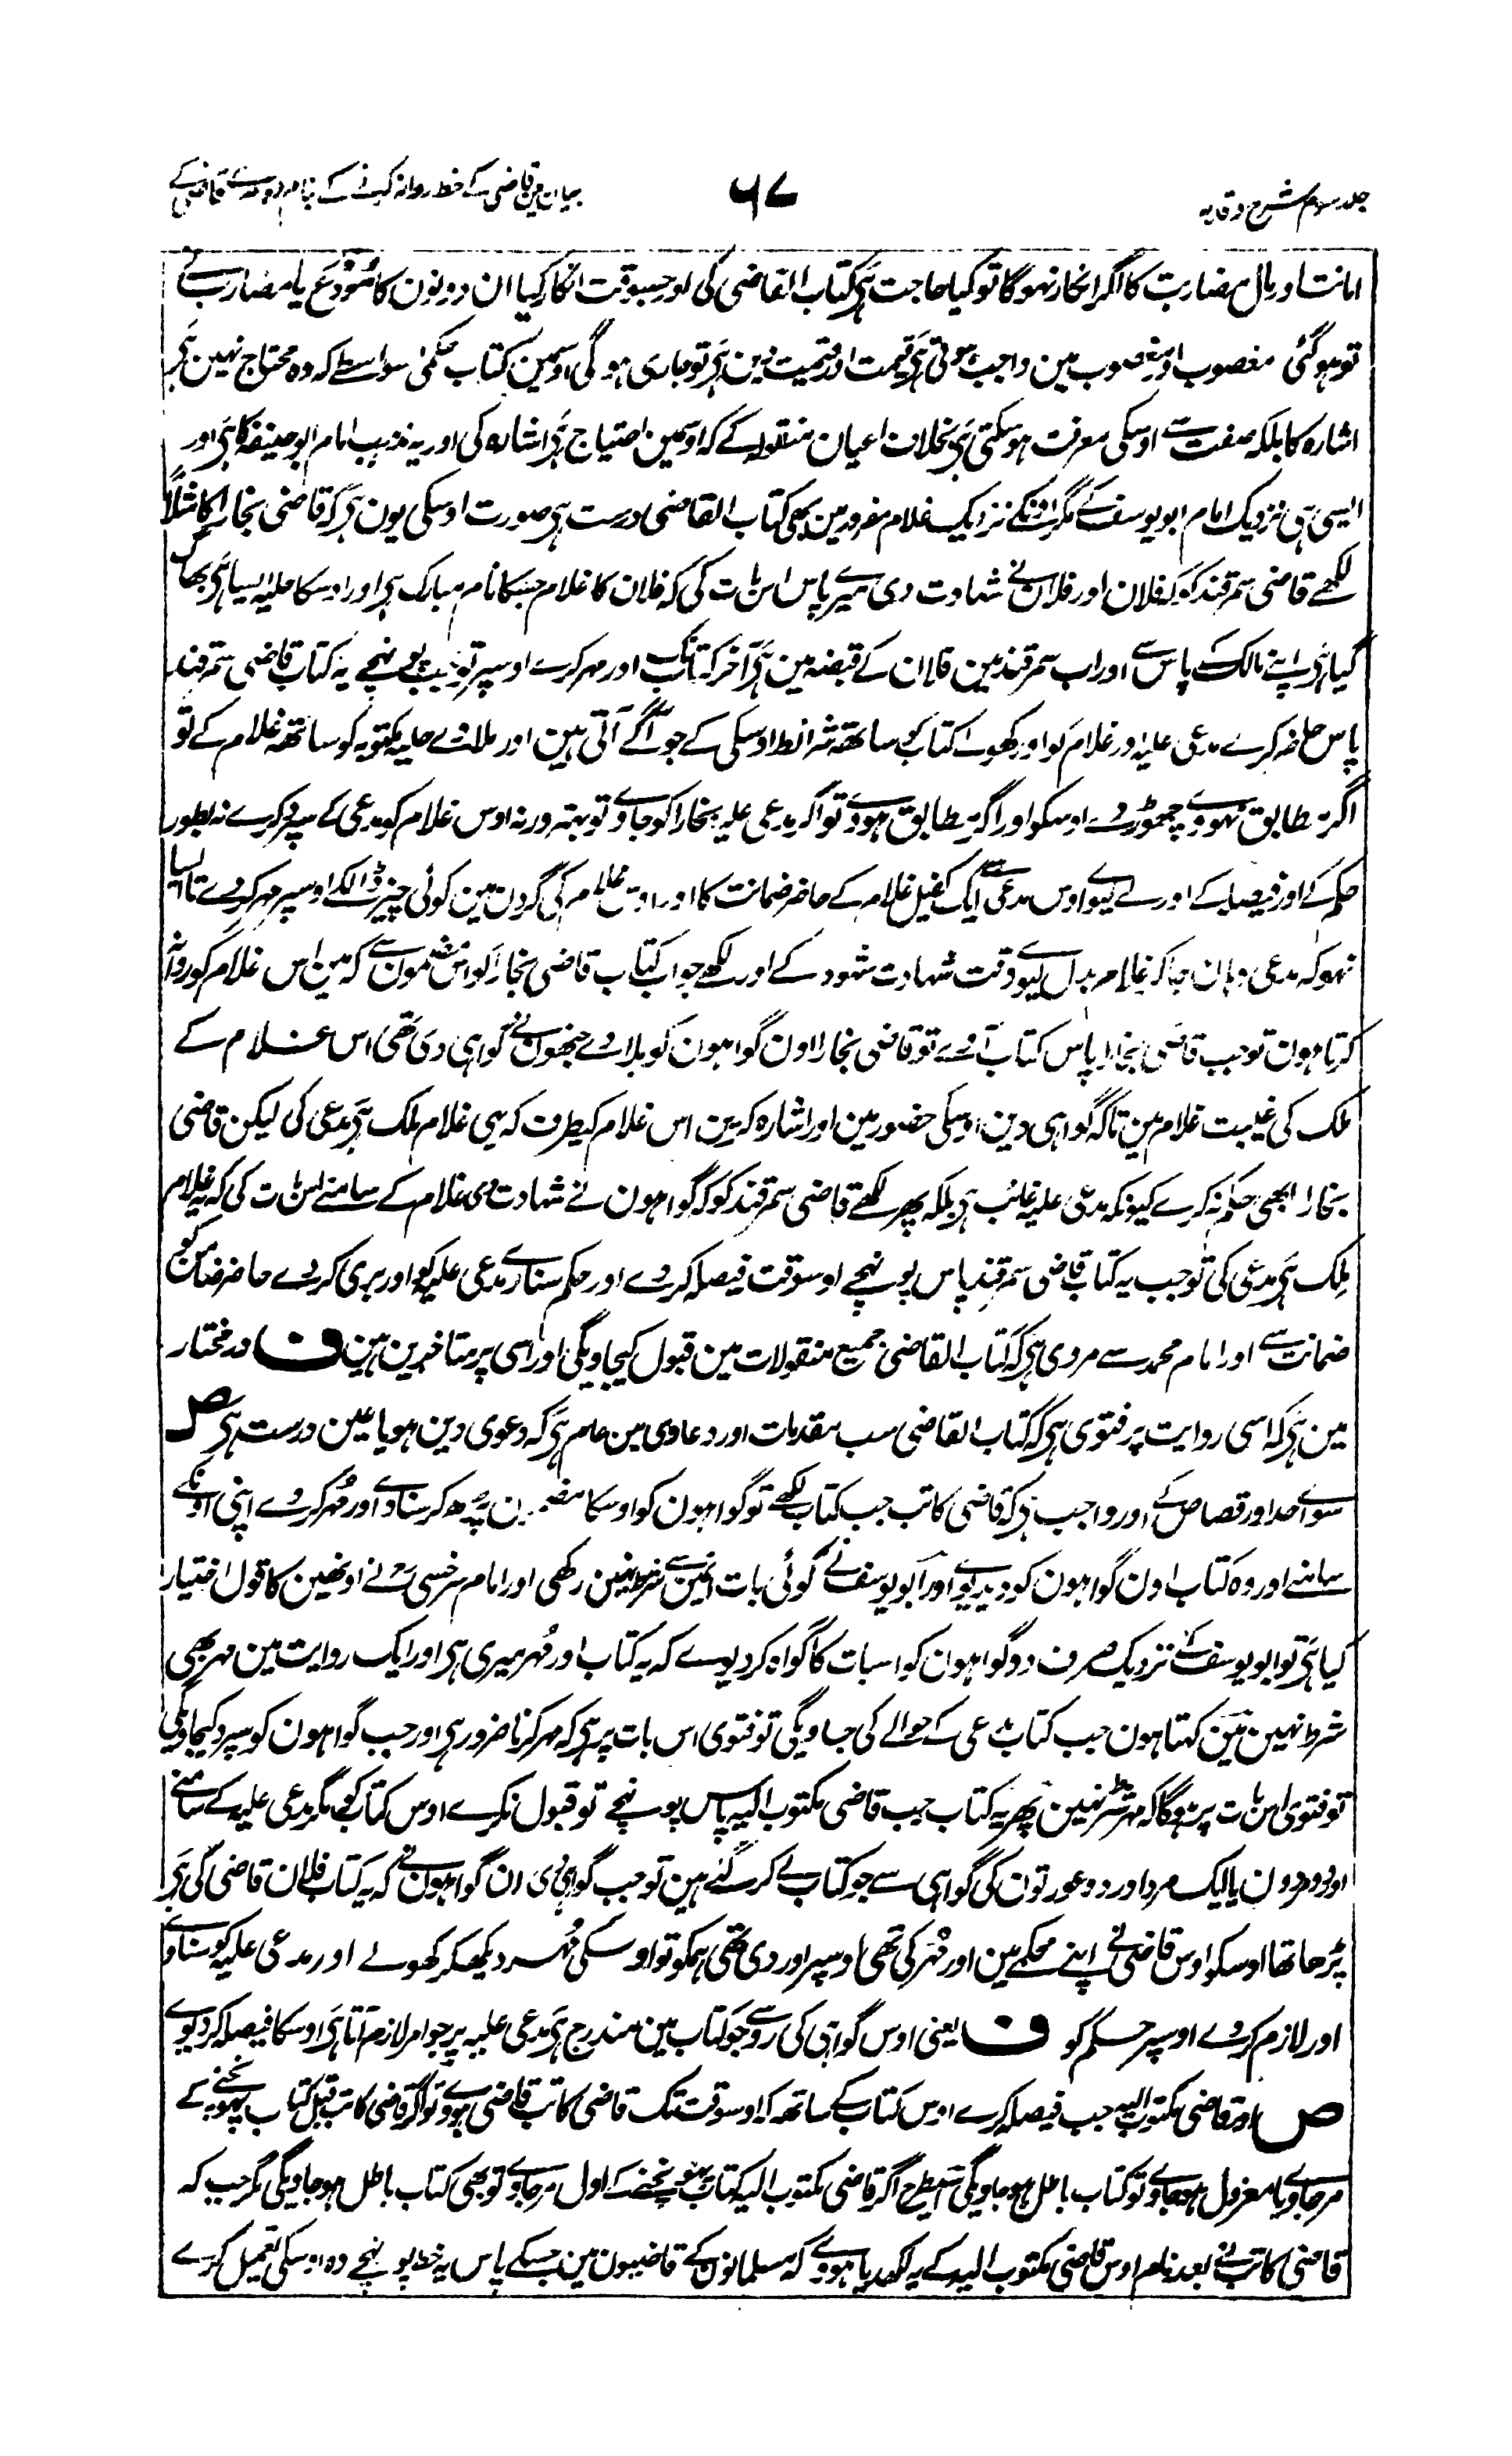 جلد سوم شرح وقایہ
۶۷
بیان مین قاضی کے خط روانہ کرنے کے بنام دوسرے قاضی کے
امانت اور مال مضاربت کا اگر انکار نہوگا تو کیا حاجت ہی کتاب القاضی کی اور جسوقت انکار کیا ان دونون کا مُودَع یا مضارب نے
تو ہوگئی مغصوب اور مغصوب مین واجب ہوتی ہی قیمت اور قیمت دین ہی تو جاری ہوگی اوسمین کتاب حکمی سواسطے کہ وہ محتاج نہین ہی
اشارہ کا بلکہ صفت سے اوسکی معرفت ہوسکتی ہی بخلاف اعیان منقولہ کے کہ اوسمین احتیاج ہی اشارہ کی اور یہ مذہب امام ابو حنیفہ کا ہی اور
ایسی ہی نزدیک امام ابو یوسف کے مگر اونکے نزدیک غلام مفرور مین بھی کتاب القاضی درست ہی صورت اوسکی یون ہی کہ قاضی بخارا کا مثلاً
لکھے قاضی سمرقند کو کہ فلان اور فلان نے شہادت دی میرے پاس اس بات کی کہ فلان کا غلام جسکا نام مبارک ہی اور اوسکا حلیہ ایسا ہی بھاگ
گیا ہی اپنے مالک کے پاس سے اور اب سمرقند مین فلان کے قبضہ مین ہی آخر کتاب تک اور مہر کرے اوسپر تو جب پہونچے یہ کتاب قاضی سمرقند
پاس حاضر کرے مدعی علیہ اور غلام کو اور کھولے کتاب کو ساتھ شرائط اوسکی کے جو آگے آتی ہین اور ملاوے حلیہ مکتوبہ کو ساتھ غلام کے تو
اگر مطابق نہووے چھوڑ دے اوسکو اور اگر مطابق ہووے تو اگر مدعی علیہ بخارا کو جاوے تو بہتر ورنہ اوس غلام کو مدعی کے سپرد کرے نہ بطور
حکم کے اور فیصلہ کے اور لے لیوے اوس مدعی سے ایک کفیل غلام کے حاضر ضمانت کا اور اوس غلام کی گردن مین کوئی چیز ڈالکے اوسپر مہر کردے تا ایسا
نہو کہ مدعی وہان جاکر غلام بدل لیوے وقت شہادت شہود کے اور لکھے جواب کتاب قاضی بخارا کو اس مضمون سے کہ مین اس غلام کو روانہ
کرتا ہون تو جب قاضی بخارا پاس کتاب آوے تو قاضی بخارا اون گواہون کو بلاوے جنھون نے گواہی دی تھی اس غلام کے
ملک کی غیبت غلام مین تاکہ گواہی دین اوسکی حضور مین اور اشارہ کرین اس غلام کیطرف کہ یہی غلام ملک ہی مدعی کی لیکن قاضی
بخارا ابھی حکم نہ کرے کیونکہ مدعی علیہ غائب ہی بلکہ پھر لکھے قاضی سمرقند کو کہ گواہون نے شہادت دی غلام کے سامنے اس بات کی کہ یہ غلام
ملک ہی مدعی کی تو جب یہ کتاب قاضی سمرقند پاس پونہچے اوسوقت فیصلہ کردے اور حکم سناوے مدعی علیہ کو اور بری کردے حاضر ضامن کو
ضمانت سے اور امام محمد سے مروی ہی کہ کتاب القاضی جمیع منقولات مین قبول کیجاویگی اور اسی پر متاخرین ہین ف در مختار
مین ہی کہ اسی روایت پر فتوی ہی کہ کتاب القاضی سب مقدمات اور دعاوی مین عام ہی کہ دعوی دین ہو یا عین درست ہی ص
سوے حد اور قصاص کے اور واجب ہی کہ قاضی کاتب جب کتاب لکھے تو گواہون کو اوسکا مضمون پڑھ کر سناوے اور مُہر کردے اپنی اونکے
سامنے اور وہ کتاب اون گواہون کو دیدیوے اور ابو یوسف نے کوئی بات انمین سے شرط نہین رکھی اور امام سرخسی رح نے اونھین کا قول اختیار
کیا ہی تو ابو یوسف کے نزدیک صرف دو گواہون کو اسبات کا گواہ کر دیوے کہ یہ کتاب اور مُہر میری ہی اور ایک روایت مین مہر بھی
شرط نہین مین کہتا ہون جب کتاب مدعی کے حوالے کی جاویگی تو فتوی اس بات پر ہی کہ مہر کرنا ضرور ہی اور جب گواہون کو سپرد کیجاویگی
تو فتوی اس بات پر ہوگا کہ مہر شرط نہین پھر یہ کتاب جب قاضی مکتوب الیہ پاس پونہچے تو قبول نکرے اوس کتاب کو مگر مدعی علیہ کے سامنے
اور دو مردون یا ایک مرد اور دو عورتون کی گواہی سے جو کتاب لے کر گئے ہین تو جب گواہی دی ان گواہون نے کہ یہ کتاب فلان قاضی کی ہی
پڑھا تھا اوسکو اوس قاضی نے اپنے محکمے مین اور مُہر کی تھی اوسپر اور دی تھی ہمکو تو اوسکی مُہر دیکھکر کھولے اور مدعی علیہ کو سناوے
اور لازم کردے اوسپر حکم کو ف یعنی اوس گواہی کی رو سے جو کتاب مین مندرج ہی مدعی علیہ پر جو امر لازم آتا ہی اوسکا فیصلہ کردیوے
ص اور قاضی مکتوب الیہ جب فیصلہ کرے اوس کتاب کے ساتھ کہ اوسوقت تک قاضی کاتب قاضی ہووے تو اگر قاضی کاتب قبل کتاب پہونچنے کے
مرجاوے یا معزول ہوجاوے تو کتاب باطل ہوجاویگی اسیطرح اگر قاضی مکتوب الیہ کتاب پہونچنے کے اول مرجاوے تو بھی کتاب باطل ہوجاویگی مگر جب کہ
قاضی کاتب نے بعد نام اوس قاضی مکتوب الیہ کے یہ لکھدیا ہووے کہ مسلمانون کے قاضیون مین جسکے پاس یہ خط پونہچے وہ اوسکی تعمیل کرے